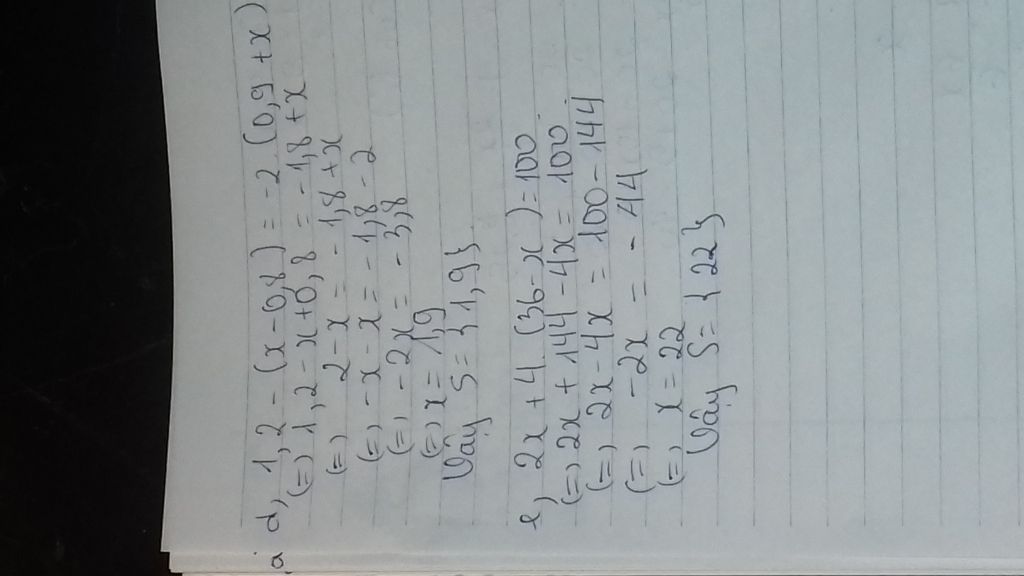 d, 1,2 - (x - 0,8) = -2 (0,9 + x)
(=) 1,2 - x + 0,8 = - 1,8 + x
(=) 2 - x = - 1,8 + x
(=) - x - x = - 1,8 - 2
(=) - 2x = - 3,8
(=) x = 1,9
Vậy S = { 1,9 }
e, 2x + 4 (36 - x) = 100
(=) 2x + 144 - 4x = 100
(=) 2x - 4x = 100 - 144
(=) - 2x = - 44
(=) x = 22
Vậy S = { 22 }